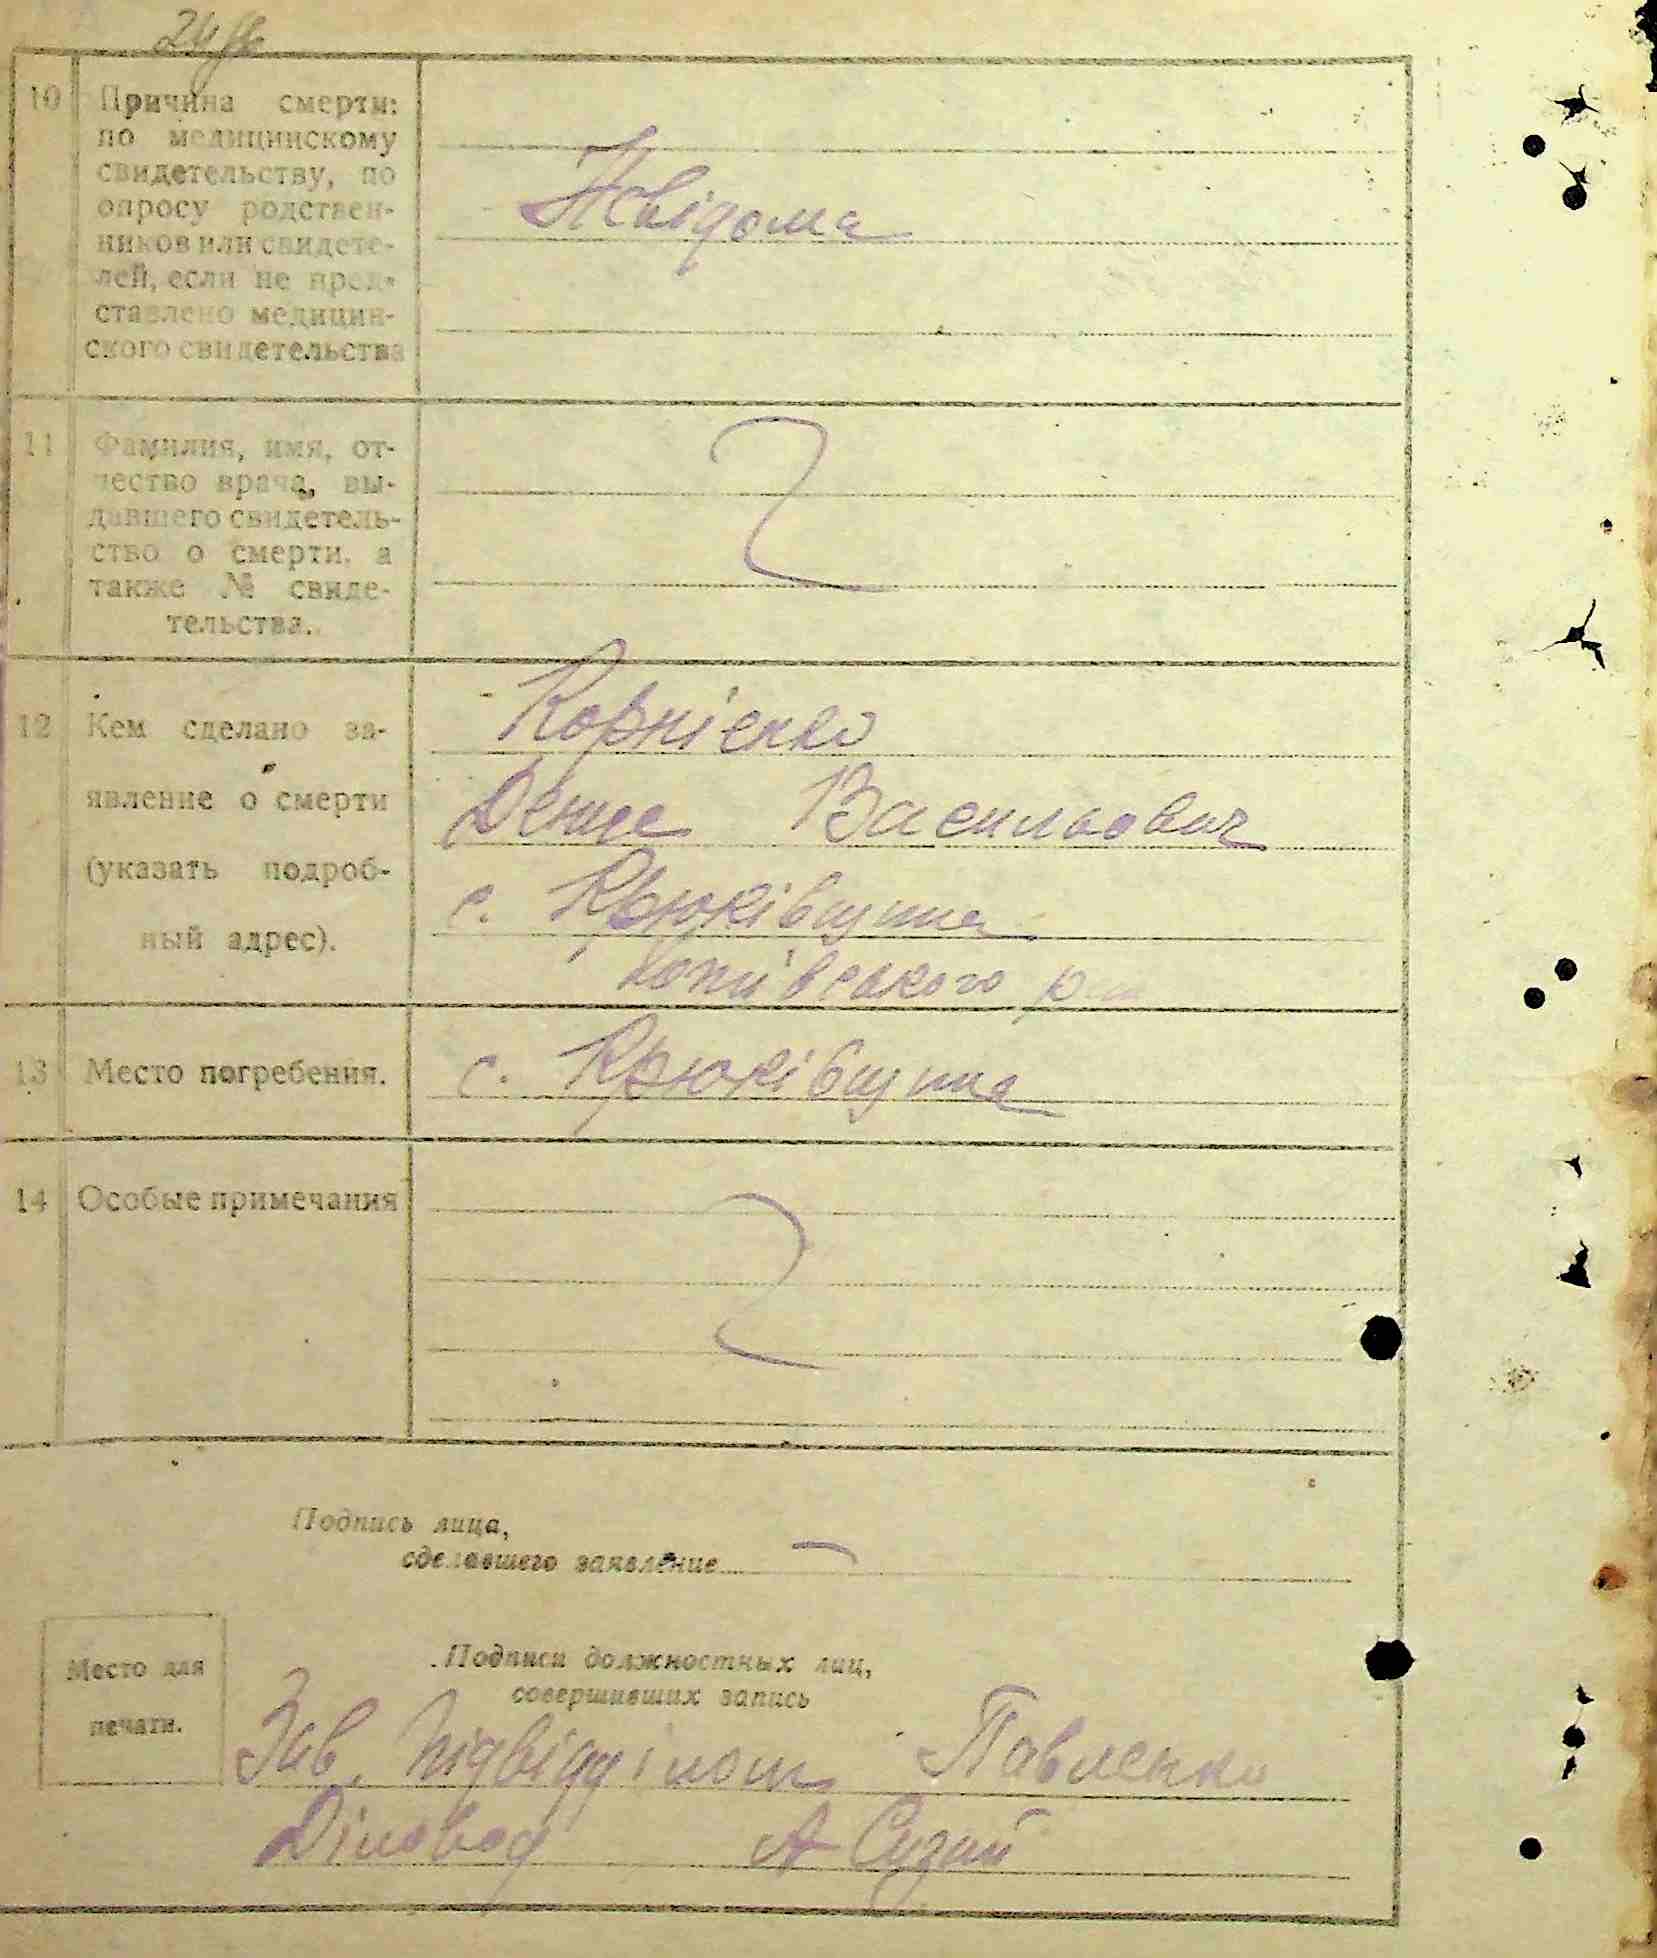 10 Причина смерти:
по медицинскому
свидетельству, по
опросу родствен-
ников или свидете-
лей, если не пред-
ставлено медицин-
ского свидетельства
Невідома
11 Фамилия, имя, от-
чество врача, вы-
давшего свидетель-
ство о смерти, а
также № свиде-
тельства.
12 Кем сделано за-
явление о смерти
(указать подроб-
ный адрес).
Корнієнко
Денис Васильович
с. Крюківщина
13 Место погребения.
с. Крюківщина
14 Особые примечания
Подпись лица,
сделавшего заявление
Место для
печати.
Подписи должностных лиц,
совершивших запись
Зав. підвідділом Павленко
Діловод А